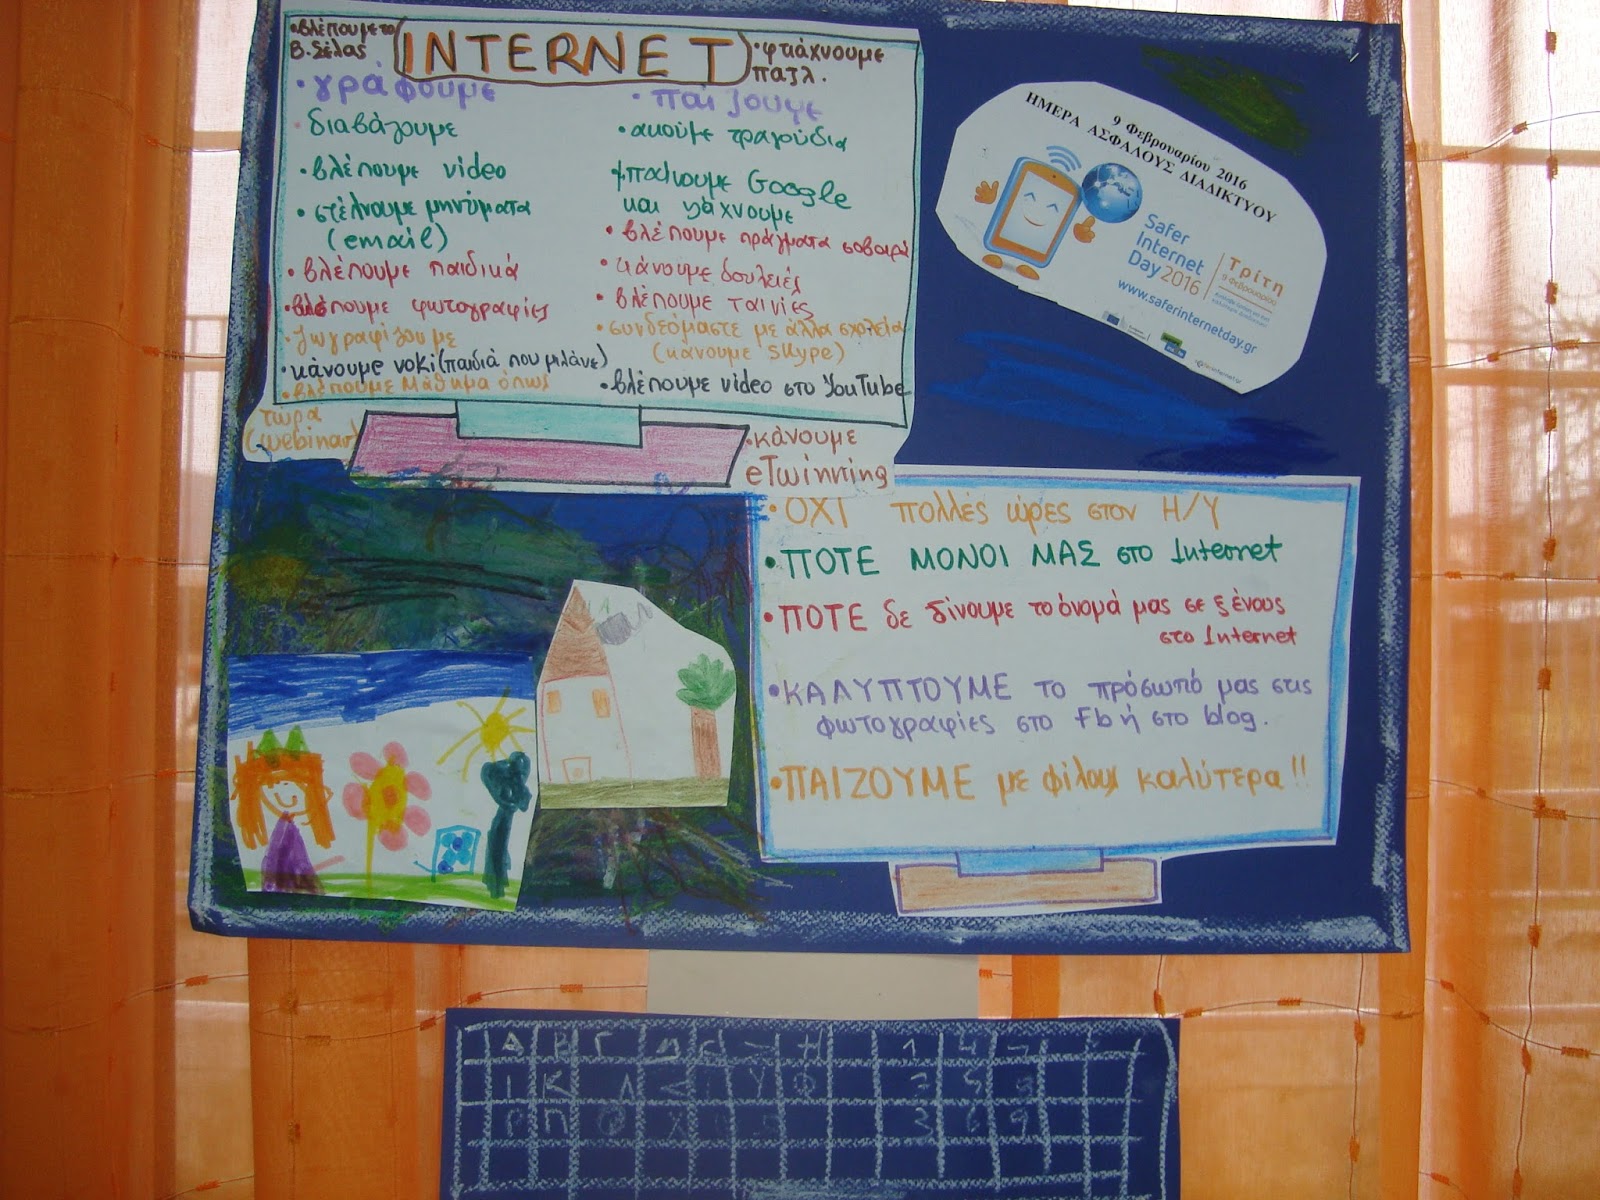 •βλέπουμε το
Β. Σέλας
INTERNET
•φτιάχνουμε
παζλ.
•γράφουμε
•διαβάζουμε
•βλέπουμε video
•στέλνουμε μηνύματα
(email)
•βλέπουμε παιδικά
•βλέπουμε φωτογραφίες
•ζωγραφίζουμε
•κάνουμε voki (παιδιά που μιλάνε)
•βλέπουμε μάθημα όπως
τώρα
(webinar)
•παίζουμε
•ακούμε τραγούδια
μπαίνουμε Google
και ψάχνουμε
•βλέπουμε πράγματα σοβαρά
•κάνουμε δουλειές
•βλέπουμε ταινίες
•συνδεόμαστε με άλλα σχολεία
(κάνουμε skype)
•βλέπουμε video στο YouTube
•κάνουμε
eTwinning
9 Φεβρουαρίου 2016
ΗΜΕΡΑ ΑΣΦΑΛΟΥΣ ΔΙΑΔΙΚΤΥΟΥ
Safer
Internet
Day 2016
Τρίτη
9 Φεβρουαρίου
www.saferinternetday.gr
•ΟΧΙ πολλές ώρες στον Η/Υ
•ΠΟΤΕ ΜΟΝΟΙ ΜΑΣ στο Internet
•ΠΟΤΕ δε δίνουμε το όνομά μας σε ξένους
στο Internet
•ΚΑΛΥΠΤΟΥΜΕ το πρόσωπό μας στις
φωτογραφίες στο Fb ή στο blog.
•ΠΑΙΖΟΥΜΕ με φίλους καλύτερα!!